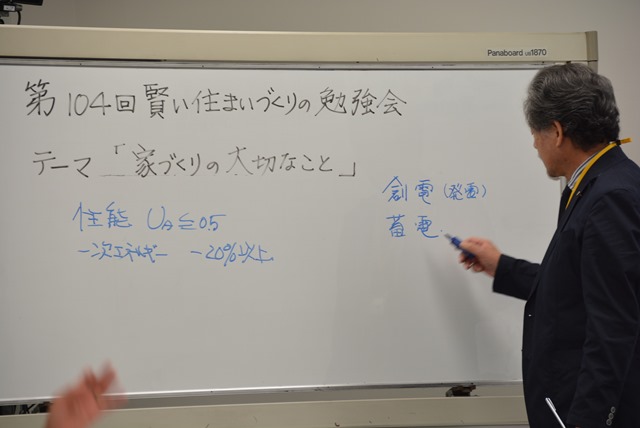 Panaboard UB1870
第104回賢い住まいづくりの勉強会
テーマ「家づくりの大切なこと」
性能 UA≦0.5
一次エネルギー －20%以上
創電（発電）
蓄電